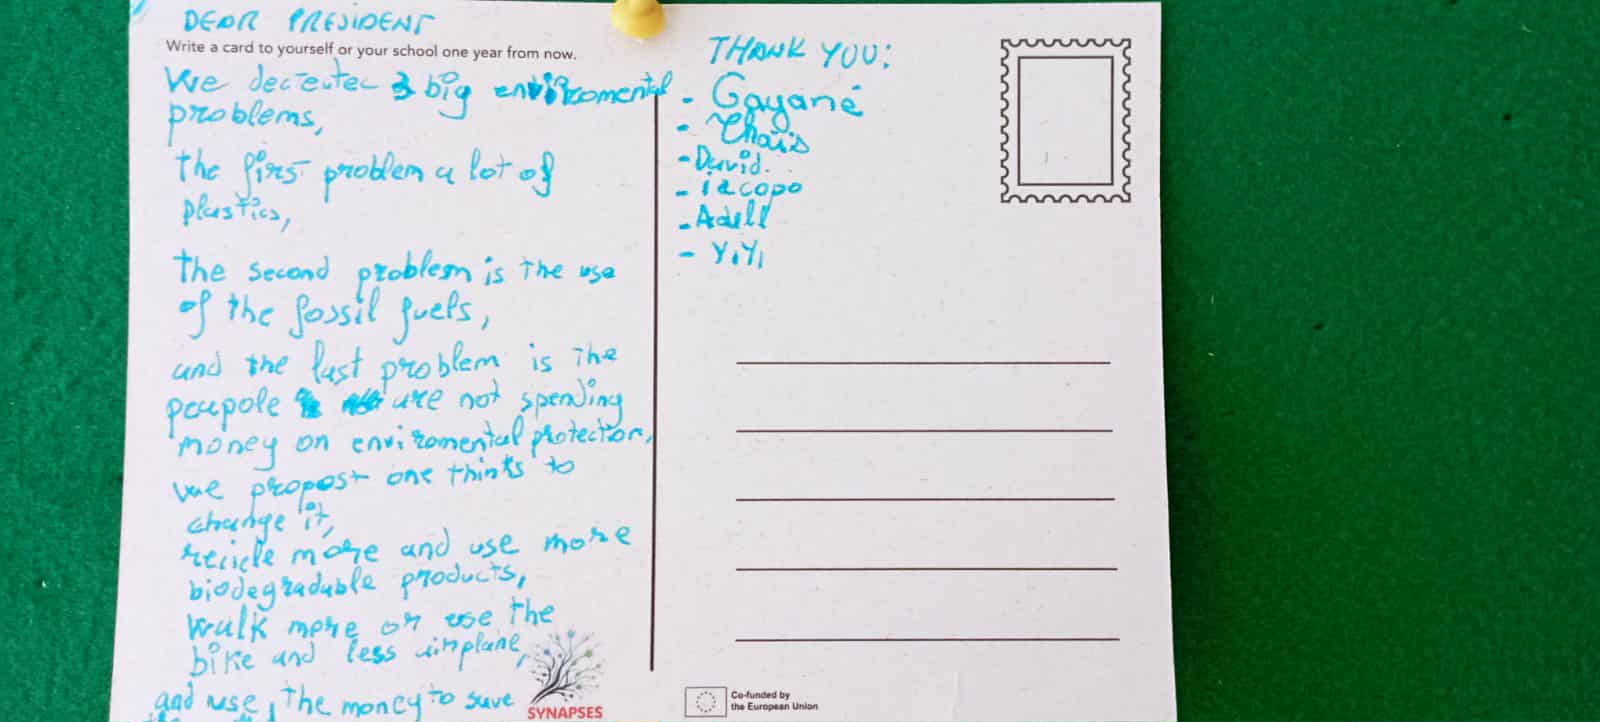 DEAR PRESIDENT
Write a card to yourself or your school one year from now.
We decteutec 3 big enviromental
problems,
the first problem a lot of
plastics,
the second problem is the use
of the fossil fuels,
and the last problem is the
peupole are not spending
money on enviromental protection,
we propost one thinks to
change it,
recicle more and use more
biodegradable products,
walk more or use the
bike and less airplane,
and use, the money to save
SYNAPSES
THANK YOU:
- Gayané
- Thaïs
- David.
- Iacopo
- Adell
- YiYi
Co-funded by
the European Union